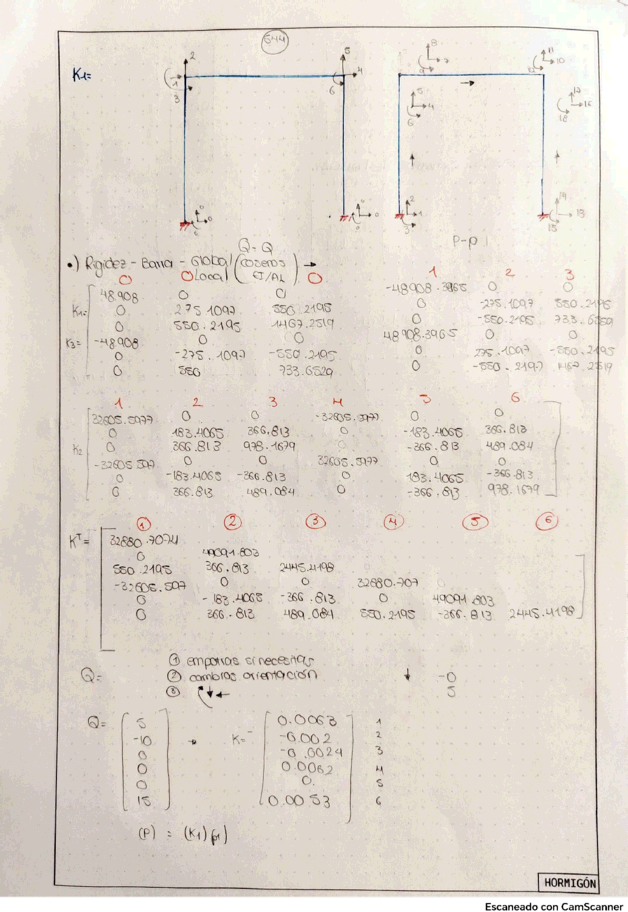 644
K1=
2
1
3
5
4
6
0
0
0
0
8
7
9
11
10
12
5
4
6
17
16
18
2
1
3
14
13
15
P-p 1
Q = Q
•) Rigidez - Barra - Global
Local
(coseros
EI/AL) →
0 0 0 1 2 3
48.908 0 0 -48908.3965 0 0
K1= 0 275.1097 550.2195 0 -275.1097 550.2195
0 550.2195 1467.2519 0 -550.2195 733.6259
K3= -48908 0 0 48908.3965 0 0
0 -275.1097 -550.2195 0 275.1097 -550.2195
0 550 733.6529 0 -550.2197 1467.2519
1 2 3 4 5 6
32605.5977 0 0 -32605.5977 0 0
0 183.4065 366.813 0 -183.4065 366.813
K2 0 366.813 978.1679 0 -366.813 489.084
-32605.597 0 0 32605.5977 0 0
0 -183.4065 -366.813 0 183.4065 -366.813
0 366.813 489.084 0 -366.813 978.1679
1 2 3 4 5 6
KT= 32880.7074
0 49091.803
550.2195 366.813 2445.4198
-32605.597 0 0 32880.707
0 -183.4065 -366.813 0 49091.803
0 366.813 489.084 550.2195 -366.813 2445.4198
Q=
① emporias si necesitas
② cambias orientación
③
↓ -0
5
Q= 5 → K=- 0.0063 1
-10 -0.002 2
0 -0.0024 3
0 0.0062 4
0 0. 5
15 0.0053 6
(P) = (K1)(p1)
HORMIGÓN
Escaneado con CamScanner